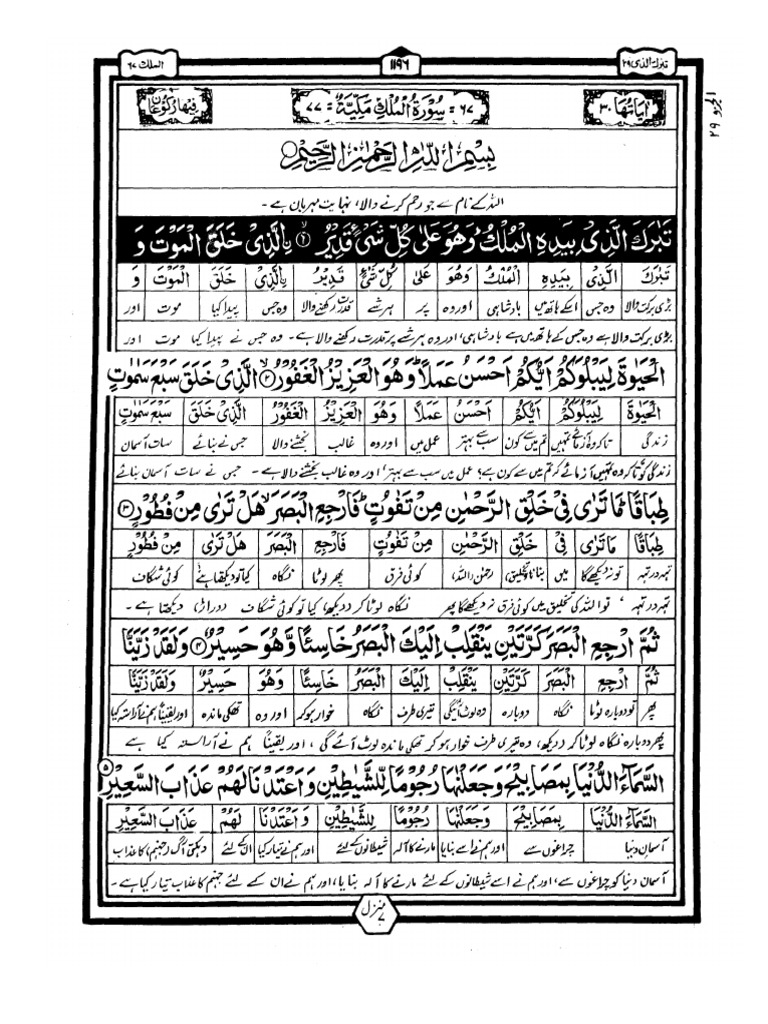 تبٰرك الذی ۲۹
۱۱۹۶
الملك ۶۷
الجزو ۲۹
اٰیاتہا ۳۰
۶۷ = سُوْرَۃُ الْمُلْكِ مَکِّیَّۃٌ = ۷۷
فیہا رکوعان
بِسْمِ اللّٰہِ الرَّحْمٰنِ الرَّحِیْمِ
اللہ کے نام سے جو رحم کرنے والا، نہایت مہربان ہے۔
تَبٰرَكَ الَّذِیْ بِیَدِہِ الْمُلْكُ وَھُوَ عَلٰی كُلِّ شَیْءٍ قَدِیْرُ ِۨالَّذِیْ خَلَقَ الْمَوْتَ وَ
تَبٰرَكَ الَّذِیْ بِیَدِہِ الْمُلْكُ وَھُوَ عَلٰی كُلِّ شَیْءٍ قَدِیْرُ ِۨالَّذِیْ خَلَقَ الْمَوْتَ وَ
بڑی برکت والا وہ جس اسکے ہاتھ میں بادشاہی اور وہ پر ہر شے قدرت رکھنے والا وہ جس پیدا کیا موت اور
بڑی برکت والا ہے وہ جس کے ہاتھ میں ہے بادشاہی، اور وہ ہر شے پر قدرت رکھنے والا ہے۔ وہ جس نے پیدا کیا موت اور
الْحَیٰوۃَ لِیَبْلُوَكُمْ اَیُّكُمْ اَحْسَنُ عَمَلًا وَھُوَ الْعَزِیْزُ الْغَفُوْرُ ۲ الَّذِیْ خَلَقَ سَبْعَ سَمٰوٰتٍ
الْحَیٰوۃَ لِیَبْلُوَكُمْ اَیُّكُمْ اَحْسَنُ عَمَلًا وَھُوَ الْعَزِیْزُ الْغَفُوْرُ الَّذِیْ خَلَقَ سَبْعَ سَمٰوٰتٍ
زندگی تاکہ وہ آزمائے تمہیں تم میں سے کون سب سے بہتر عمل میں اور وہ غالب بخشنے والا جس نے بنائے سات آسمان
زندگی کو تاکہ وہ تمہیں آزمائے کہ تم میں سے کون ہے؟ عمل میں سب سے بہتر' اور وہ غالب بخشنے والا ہے۔ جس نے سات آسمان بنائے
طِبَاقًا مَا تَرٰی فِیْ خَلْقِ الرَّحْمٰنِ مِنْ تَفٰوُتٍ فَارْجِعِ الْبَصَرَ ھَلْ تَرٰی مِنْ فُطُوْرٍ ۳
طِبَاقًا مَا تَرٰی فِیْ خَلْقِ الرَّحْمٰنِ مِنْ تَفٰوُتٍ فَارْجِعِ الْبَصَرَ ھَلْ تَرٰی مِنْ فُطُوْرٍ
تہہ در تہہ تو نہ دیکھے گا میں بنانا (تخلیق) رحمٰن (اللہ) کوئی فرق پھر لوٹا نگاہ کیا تو دیکھتا ہے کوئی شگاف
تہہ در تہہ ' تو اللہ کی تخلیق میں کوئی فرق نہ دیکھے گا پھر نگاہ لوٹا کر دیکھ، کیا تو کوئی شگاف (دراڑ) دیکھتا ہے۔
ثُمَّ ارْجِعِ الْبَصَرَ كَرَّتَیْنِ یَنْقَلِبْ اِلَیْكَ الْبَصَرُ خَاسِئًا وَّھُوَ حَسِیْرٌ ۴ وَلَقَدْ زَیَّنَّا
ثُمَّ ارْجِعِ الْبَصَرَ كَرَّتَیْنِ یَنْقَلِبْ اِلَیْكَ الْبَصَرُ خَاسِئًا وَّھُوَ حَسِیْرٌ وَلَقَدْ زَیَّنَّا
پھر تو دوبارہ لوٹا نگاہ دوبارہ وہ لوٹ آئیگی تیری طرف نگاہ خوار ہوکر اور وہ تھکی ماندہ اور یقیناً ہم نے آراستہ کیا
پھر دوبارہ نگاہ لوٹا کر دیکھ، وہ تیری طرف خوار ہو کر تھکی ماندہ لوٹ آئے گی، اور یقیناً ہم نے آراستہ کیا ہے
السَّمَآءَ الدُّنْیَا بِمَصَابِیْحَ وَجَعَلْنٰہَا رُجُوْمًا لِّلشَّیٰطِیْنِ وَاَعْتَدْنَا لَہُمْ عَذَابَ السَّعِیْرِ ۵
السَّمَآءَ الدُّنْیَا بِمَصَابِیْحَ وَجَعَلْنٰہَا رُجُوْمًا لِّلشَّیٰطِیْنِ وَاَعْتَدْنَا لَہُمْ عَذَابَ السَّعِیْرِ
آسمان دنیا چراغوں سے اور ہم نے اسے بنایا مارنے کا آلہ شیطانوں کے لئے اور ہم نے تیار کیا ان کے لئے دہکتی آگ (جہنم) کا عذاب
آسمان دنیا کو چراغوں سے، اور ہم نے اسے شیطانوں کے لئے مارنے کا آلہ بنایا، اور ہم نے ان کے لئے جہنم کا عذاب تیار کیا ہے۔
منزل ۷